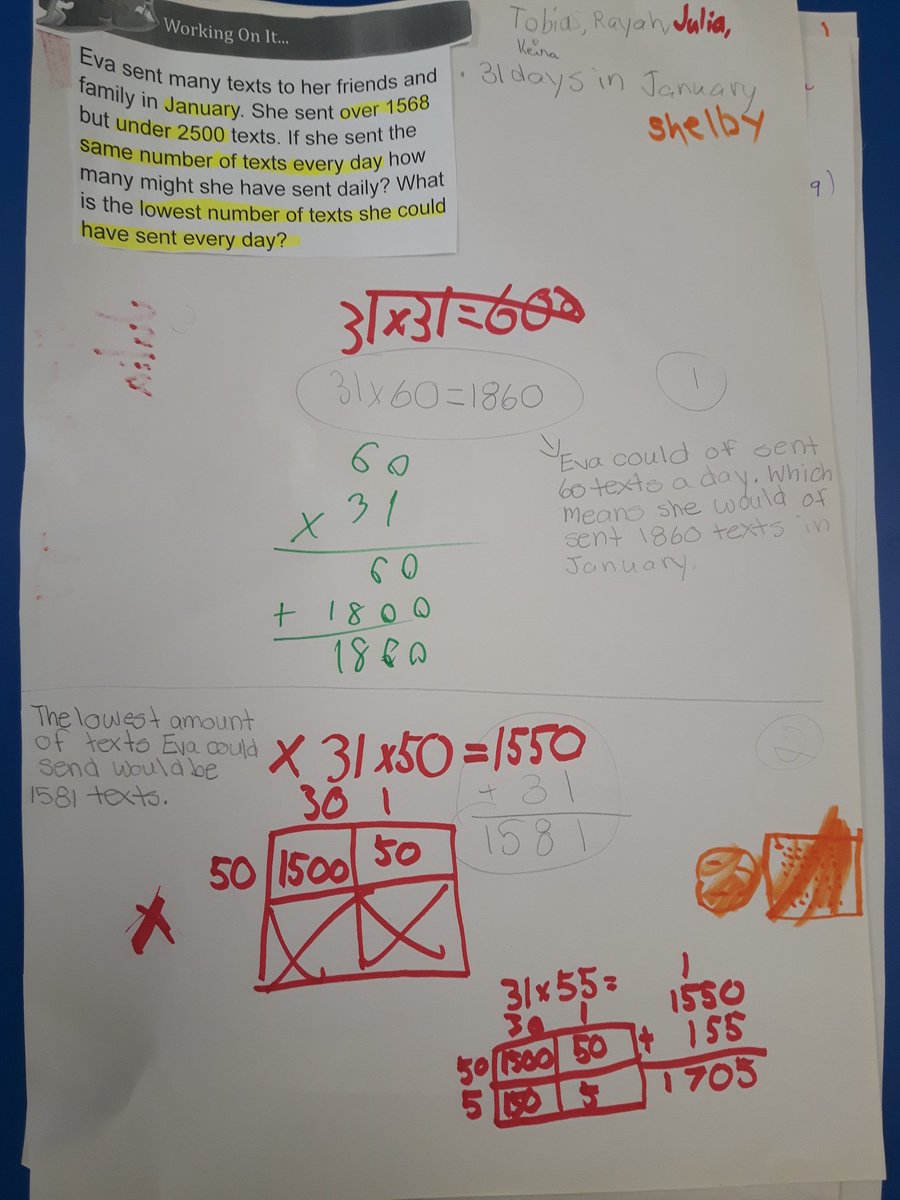 Working On It...
Eva sent many texts to her friends and
family in January. She sent over 1568
but under 2500 texts. If she sent the
same number of texts every day how
many might she have sent daily? What
is the lowest number of texts she could
have sent every day?
Tobias, Rayah, Julia,
Keira
• 31 days in January
shelby
9)
31x31=600
31x60=1860
1
60
x 31
60
+ 1800
1860
Eva could of sent
60 texts a day. Which
means she would of
sent 1860 texts in
January.
The lowest amount
of texts Eva could
send would be
1581 texts.
x 31x50=1550
+ 31
1581
2
30 1
50 1500 50
x
31x55=
30 1
50 1500 50
5 150 5
1
1550
+ 155
1705